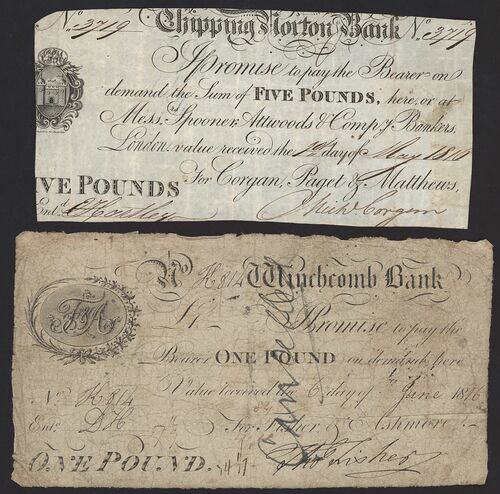 No. 3719 Chipping Norton Bank No. 3719
I Promise to pay the Bearer on
demand the Sum of FIVE POUNDS, here, or at
Mess.rs Spooner, Attwoods & Comp.y Bankers,
London. value received the day of May
For Corgan, Paget & Matthews,
IVE POUNDS
Ent.d Rich.d Corgan
No. K814 Winchcomb Bank
I Promise to pay the
Bearer ONE POUND on demand here
Value received the 6 day of June 1816
No. K814
F&A
Ent.d For Fisher & Ashmore
Cancelled
ONE POUND. Tho.s Fisher